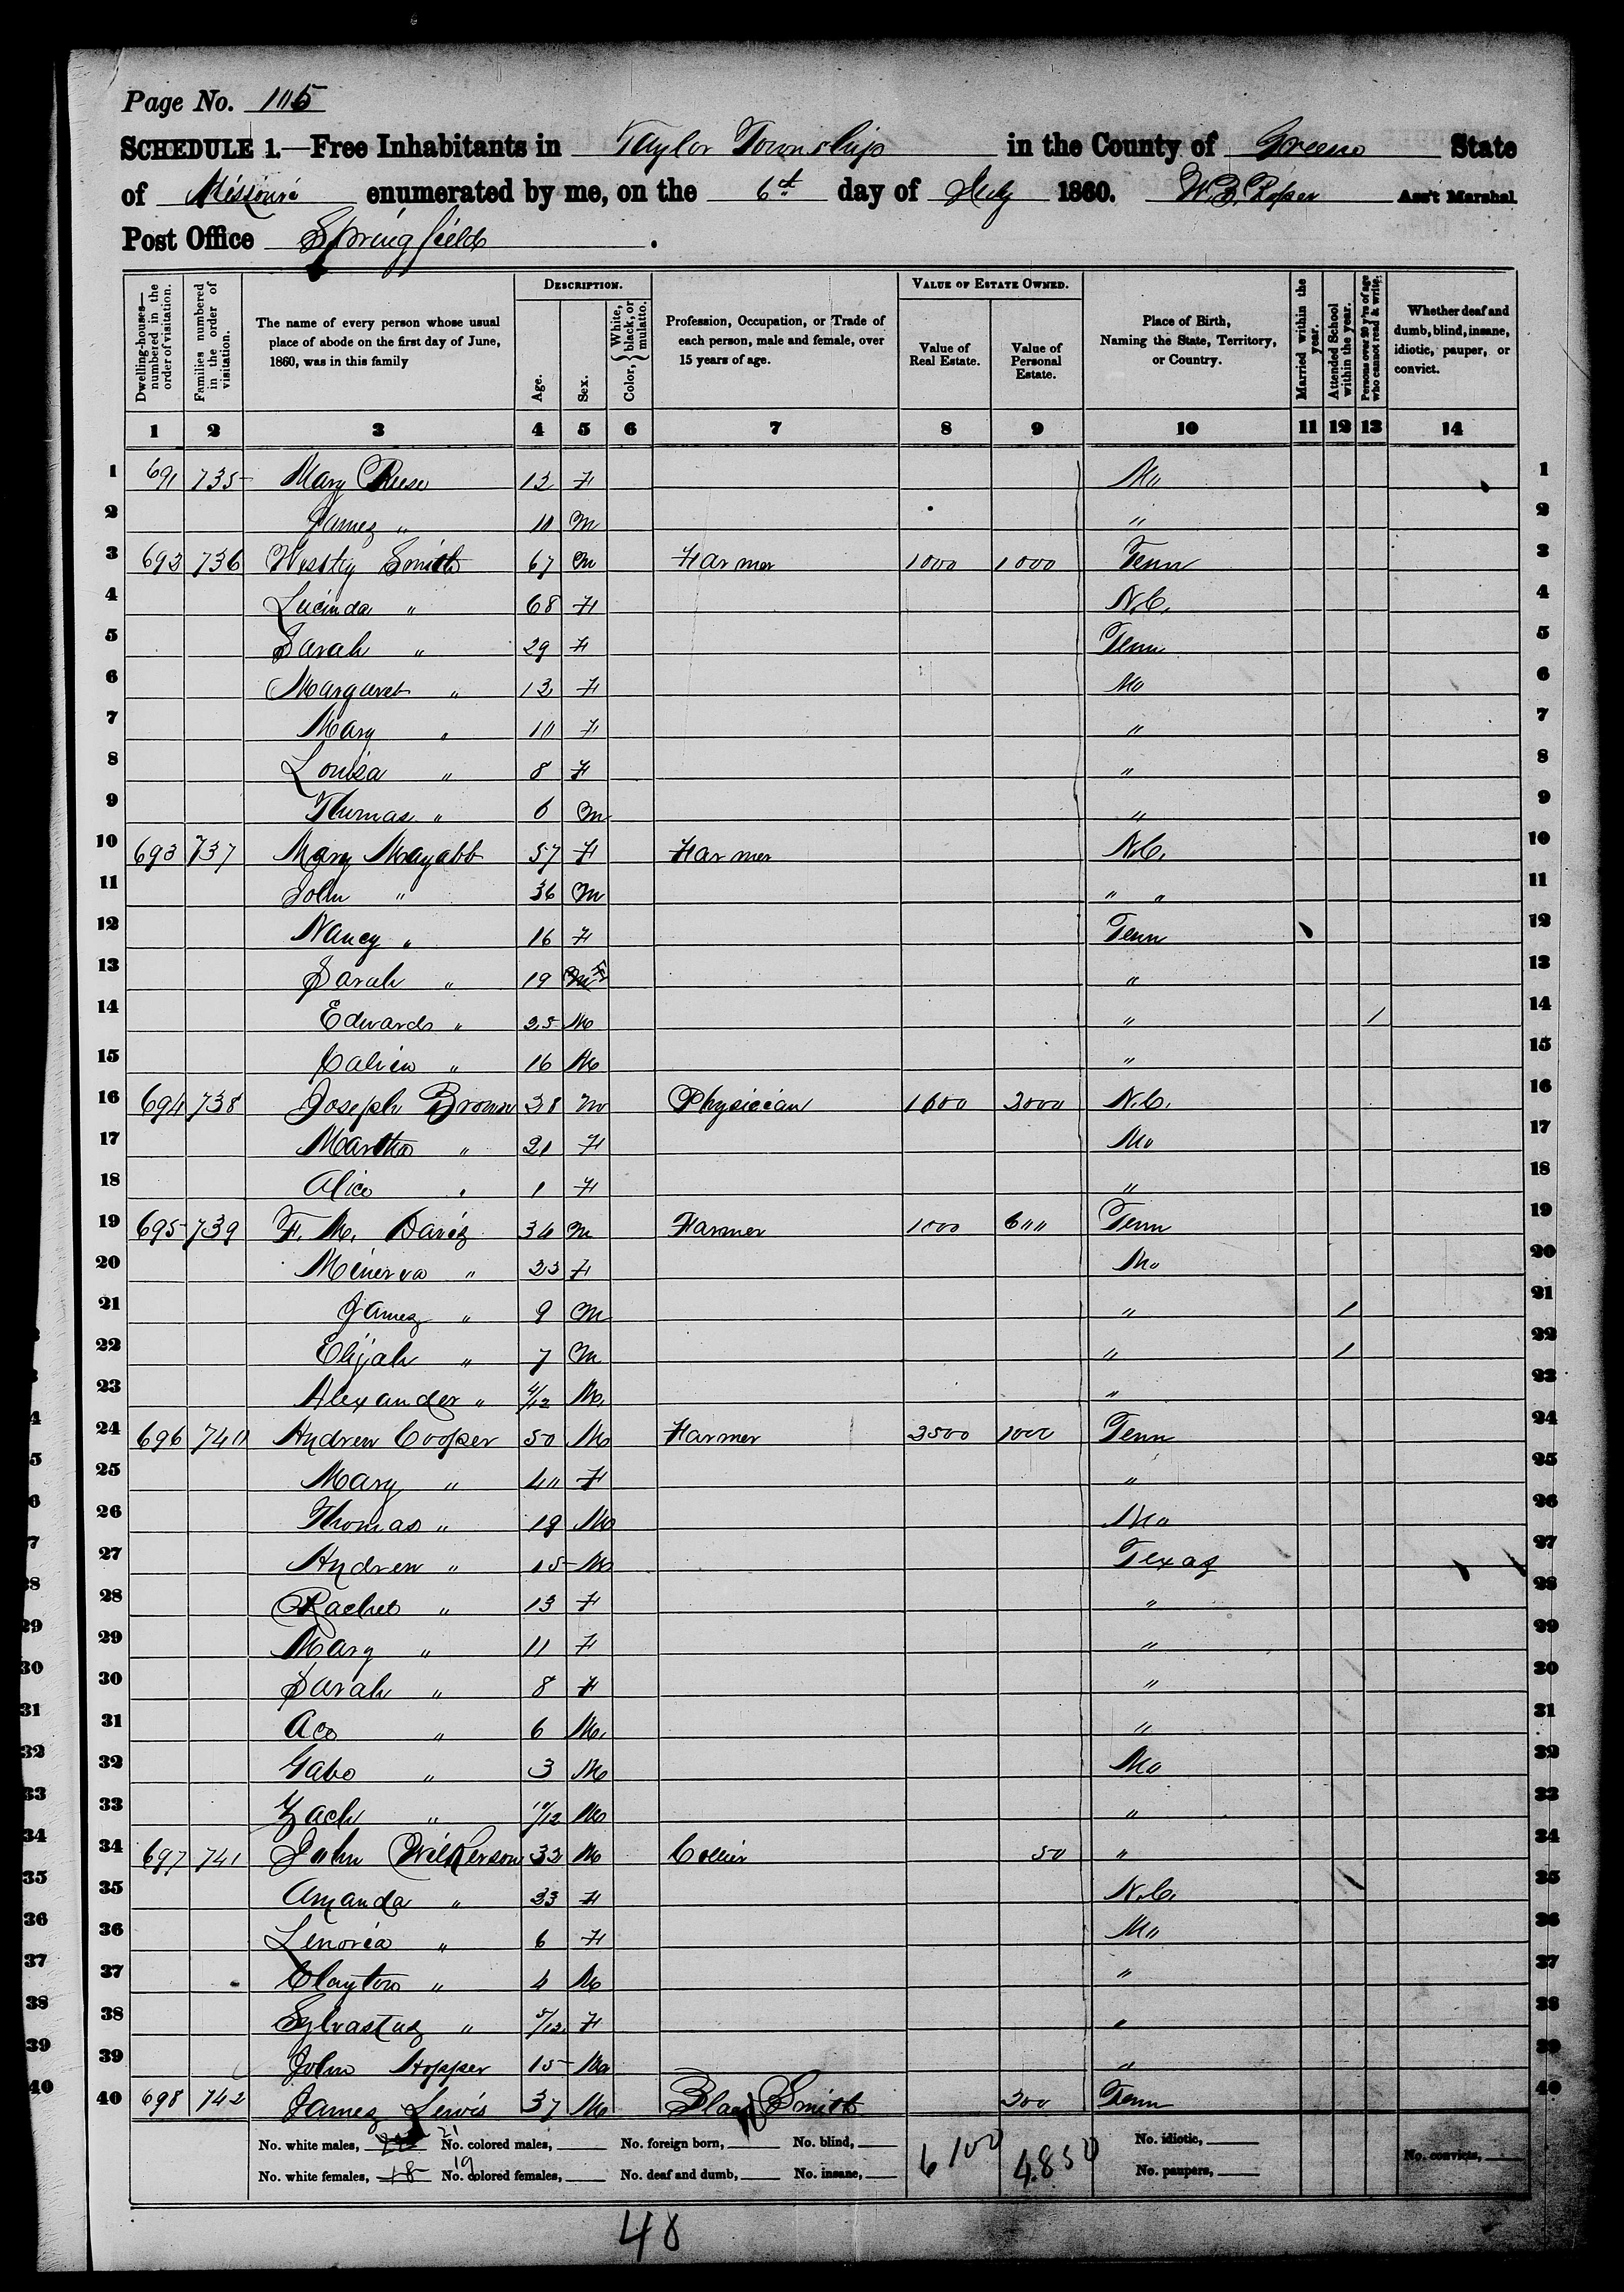 Page No. 105
SCHEDULE 1.—Free Inhabitants in Taylor Township in the County of Greene State
of Missouri enumerated by me, on the 6th day of July 1860. W. B. Roper Ass't Marshal.
Post Office Springfield.
Dwelling-houses—numbered in the order of visitation. Families numbered in the order of visitation. The name of every person whose usual place of abode on the first day of June, 1860, was in this family DESCRIPTION. Age. Sex. Color, White, black, or mulatto. Profession, Occupation, or Trade of each person, male and female, over 15 years of age. VALUE OF ESTATE OWNED. Value of Real Estate. Value of Personal Estate. Place of Birth, Naming the State, Territory, or Country. Married within the year. Attended School within the year. Persons over 20 y'rs of age who cannot read & write. Whether deaf and dumb, blind, insane, idiotic, pauper, or convict.
1 2 3 4 5 6 7 8 9 10 11 12 13 14
1 691 735 Mary Reese 12 F Mo 1
2 James " 10 M " 2
3 692 736 Smith 67 M Farmer 1000 1000 Tenn 3
4 Lucinda " 68 F N.C. 4
5 Sarah " 29 F Tenn 5
6 Margaret " 12 F Mo 6
7 Mary " 10 F " 7
8 Louisa " 8 F " 8
9 Thomas " 6 M " 9
10 693 737 Mary 57 F Farmer N.C. 10
11 John " 36 M " " 11
12 Nancy " 16 F Tenn 12
13 Sarah " 19 F " 13
14 Edward " 25 M " / 14
15 Calvin " 16 M " 15
16 694 738 Joseph Brown 38 M Physician 1600 2000 N.C. 16
17 Martha " 21 F Mo 17
18 Alice " 1 F " 18
19 695 739 F. M. Davis 34 M Farmer 1000 600 Tenn 19
20 Minerva " 23 F Mo 20
21 James " 9 M " / 21
22 Elijah " 7 M " / 22
23 Alexander " 4/12 M " 23
24 696 740 Andrew Cooper 50 M Farmer 2500 1000 Tenn 24
25 Mary " 40 F " 25
26 Thomas " 19 M Mo 26
27 Andrew " 15 M Texas 27
28 Rachel " 13 F " 28
29 Mary " 11 F " 29
30 Sarah " 8 F " 30
31 " 6 M " 31
32 Gabe " 3 M Mo 32
33 Zach " 10/12 M " 33
34 697 741 John Wilkerson 32 M Collier 50 " 34
35 Amanda " 23 F N.C. 35
36 Lenora " 6 F Mo 36
37 Clayton " 4 M " 37
38 Sylvastus " 5/12 F " 38
39 John Hopper 15 M " 39
40 698 742 James Lewis 37 M Black Smith 200 Tenn 40
No. white males, 21 No. colored males, No. foreign born, No. blind, 6100 4.850 No. idiotic,
No. white females, 18 19 No. colored females, No. deaf and dumb, No. insane, No. paupers, No. convicts,
48